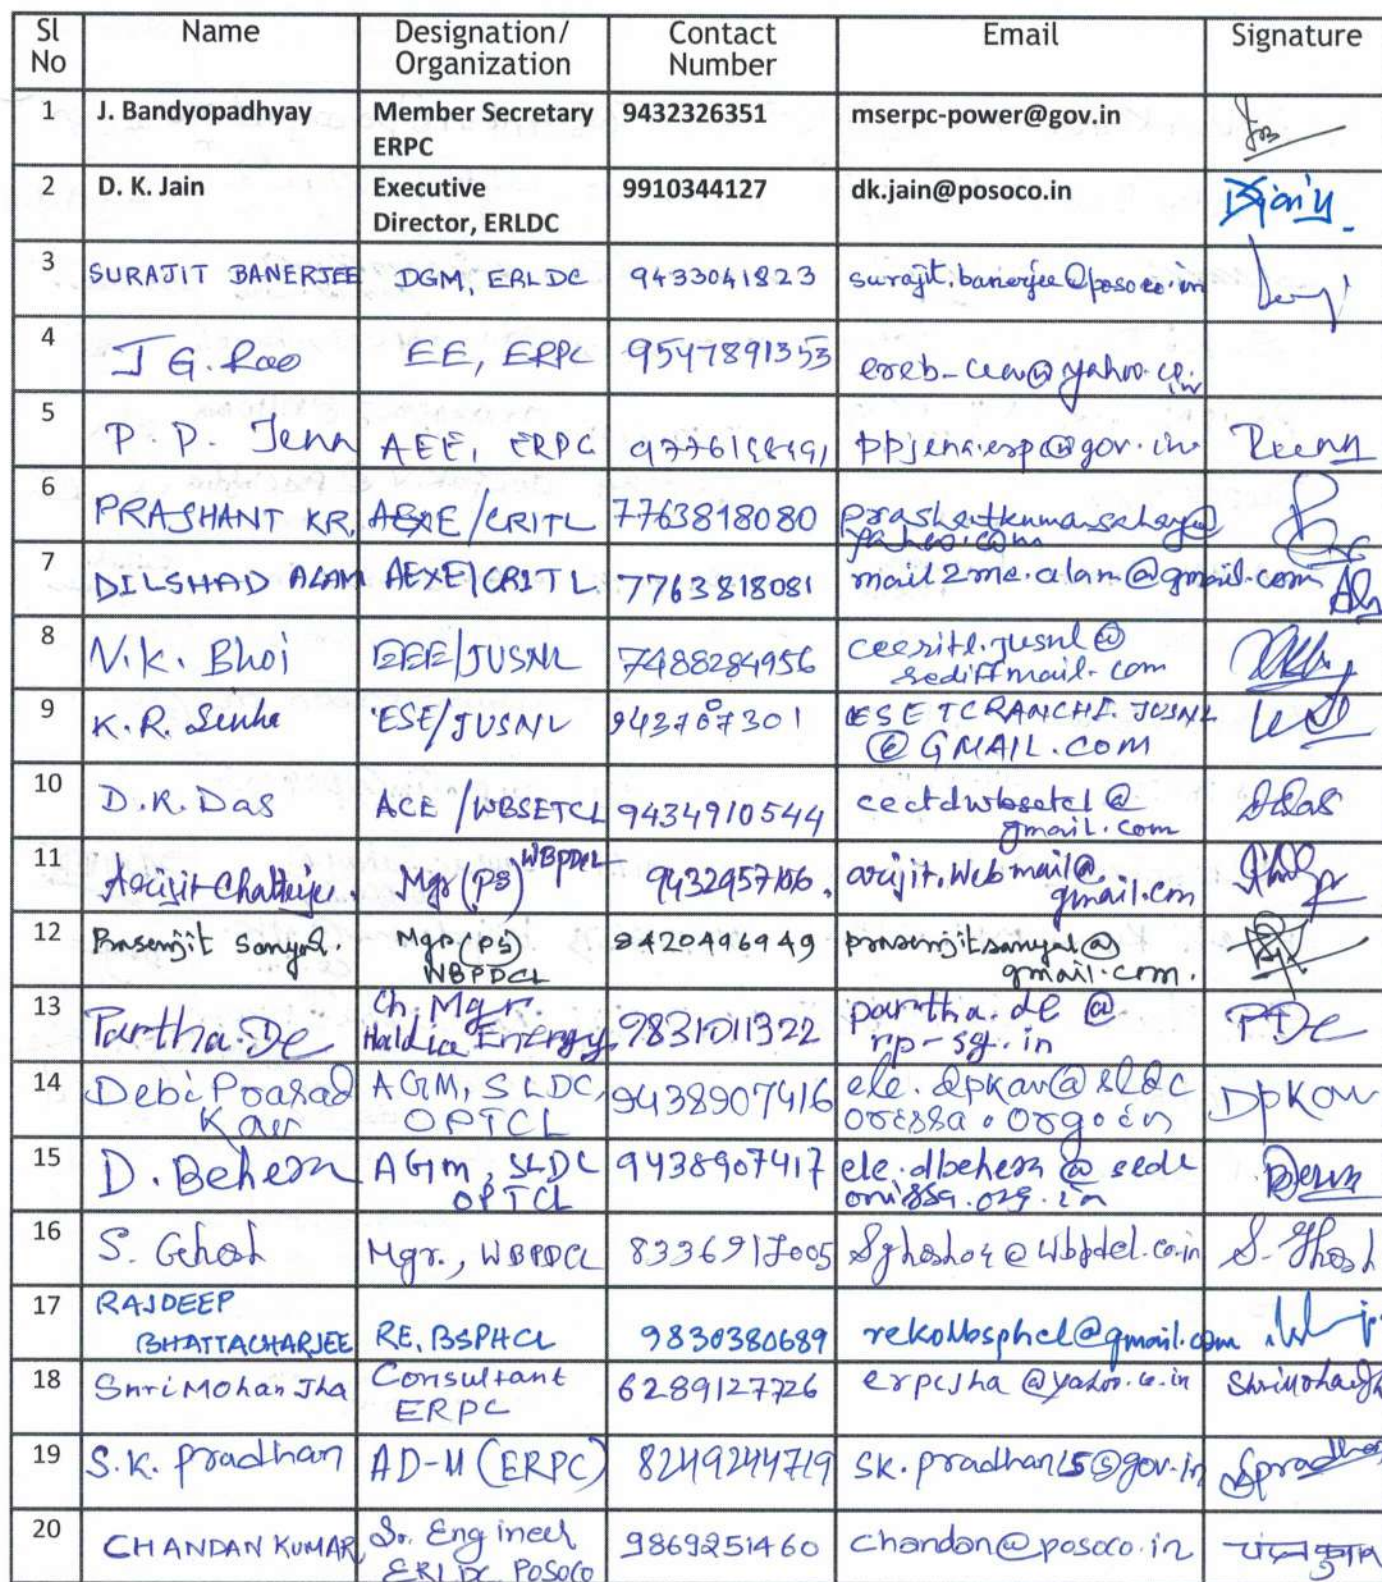 Sl No Name Designation/ Organization Contact Number Email Signature
1 J. Bandyopadhyay Member Secretary ERPC 9432326351 mserpc-power@gov.in
2 D. K. Jain Executive Director, ERLDC 9910344127 dk.jain@posoco.in
3 SURAJIT BANERJEE DGM, ERLDC 9433041823 surajit.banerjee@posoco.in
4 J G. Rao EE, ERPC 9547891353 ereb-cea@yahoo.co.in
5 P. P. Jena AEE, ERPC ppjena.erp@gov.in
6 PRASHANT KR. /CRITL 7763818080
7 DILSHAD ALAM AEXE/CRITL 7763818081 mail2me.alam@gmail.com
8 N.K. Bhoi EEE/JUSNL 7488284956 ceesitl.jusnl@rediffmail.com
9 K.R. Sinha ESE/JUSNL ESETCRANCHI.JUSNL@GMAIL.COM
10 D.K. Das ACE/WBSETCL 9434910544 cectdwbsetcl@gmail.com DDas
11 Arijit Chatterjee. Mgr (PS) WBPDCL arijit.webmail@gmail.com
12 Prasenjit Sanyal. Mgr (PS) WBPDCL 8420496949 prasenjitsanyal@gmail.com.
13 Partha De Ch. Mgr. Haldia Energy 9831011322 partha.de@rp-sg.in PDe
14 Debi Prasad Kar AGM, SLDC, OPTCL 9438907416 ele.dpkar@sldcorissa.org.in DpKar
15 D. Behera AGM, SLDC OPTCL 9438907417
16 S. Ghosh Mgr., WBPDCL 8336917005 S. Ghosh
17 RAJDEEP BHATTACHARJEE RE, BSPHCL 9830380689 rekolbsphcl@gmail.com
18 Shri Mohan Jha Consultant ERPC 6289127726 erpcjha@yahoo.co.in Shrimohan Jha
19 S.K. Pradhan AD-II (ERPC) 8249244719 sk.pradhan15@gov.in Spradhan
20 CHANDAN KUMAR Sr. Engineer ERLDC, POSOCO 9869251460 chandan@posoco.in